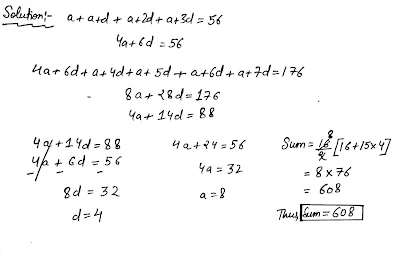 Solution:- a + a+d + a+2d + a+3d = 56
4a+6d = 56
4a+6d + a+4d + a+5d + a+6d + a+7d = 176
8a + 28d = 176
4a + 14d = 88
4a + 14d = 88
4a + 6d = 56
8d = 32
d = 4
4a + 24 = 56
4a = 32
a = 8
Sum = 16/2 8 [16 + 15×4]
= 8 × 76
= 608
Thus, Sum = 608